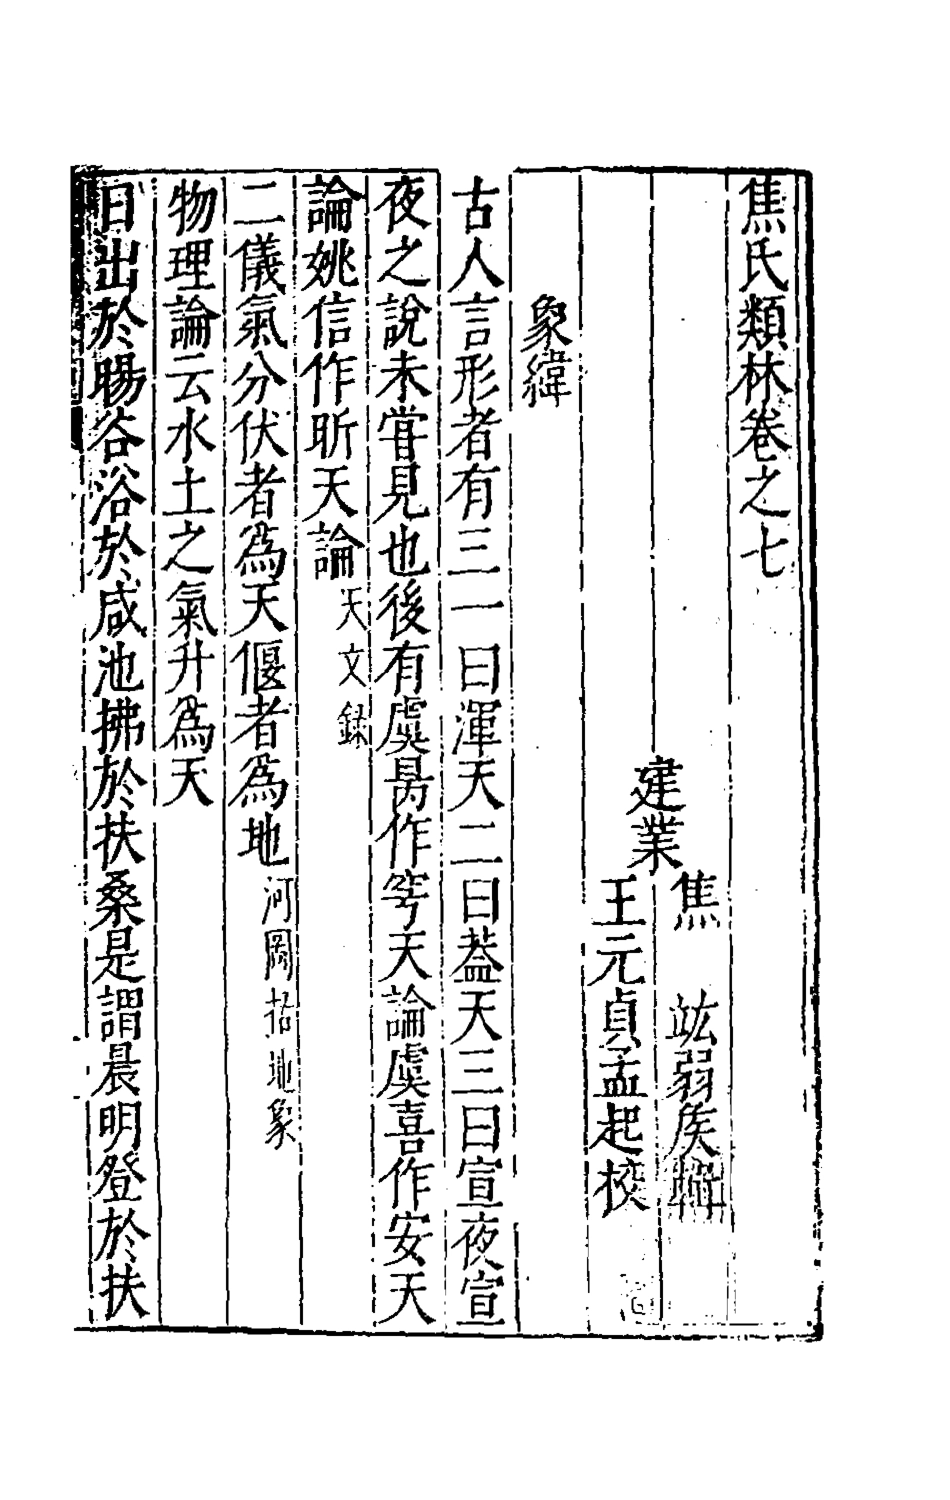 焦氏類林卷之七
建業
焦　竑弱矦輯
王元貞孟起校
象緯
古人言形者有三一曰渾天二曰葢天三曰宣夜宣
夜之說未嘗見也後有虞昺作穹天論虞喜作安天
論姚信作昕天論天文録
二儀氣分伏者爲天偃者爲地河圖括地象
物理論云水土之氣升爲天
日出於暘谷浴於咸池拂於扶桑是謂晨明登於扶